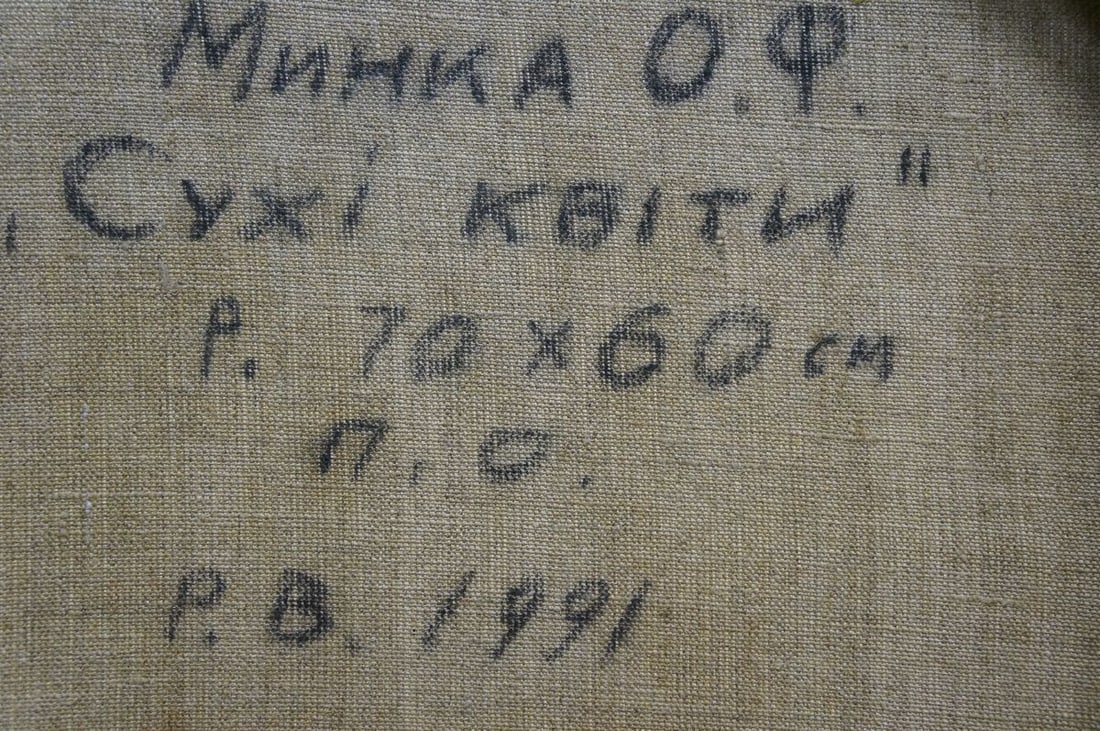 Минка О.Ф.
„Сухі квіти"
Р. 70х60см
П.О.
Р.В. 1991